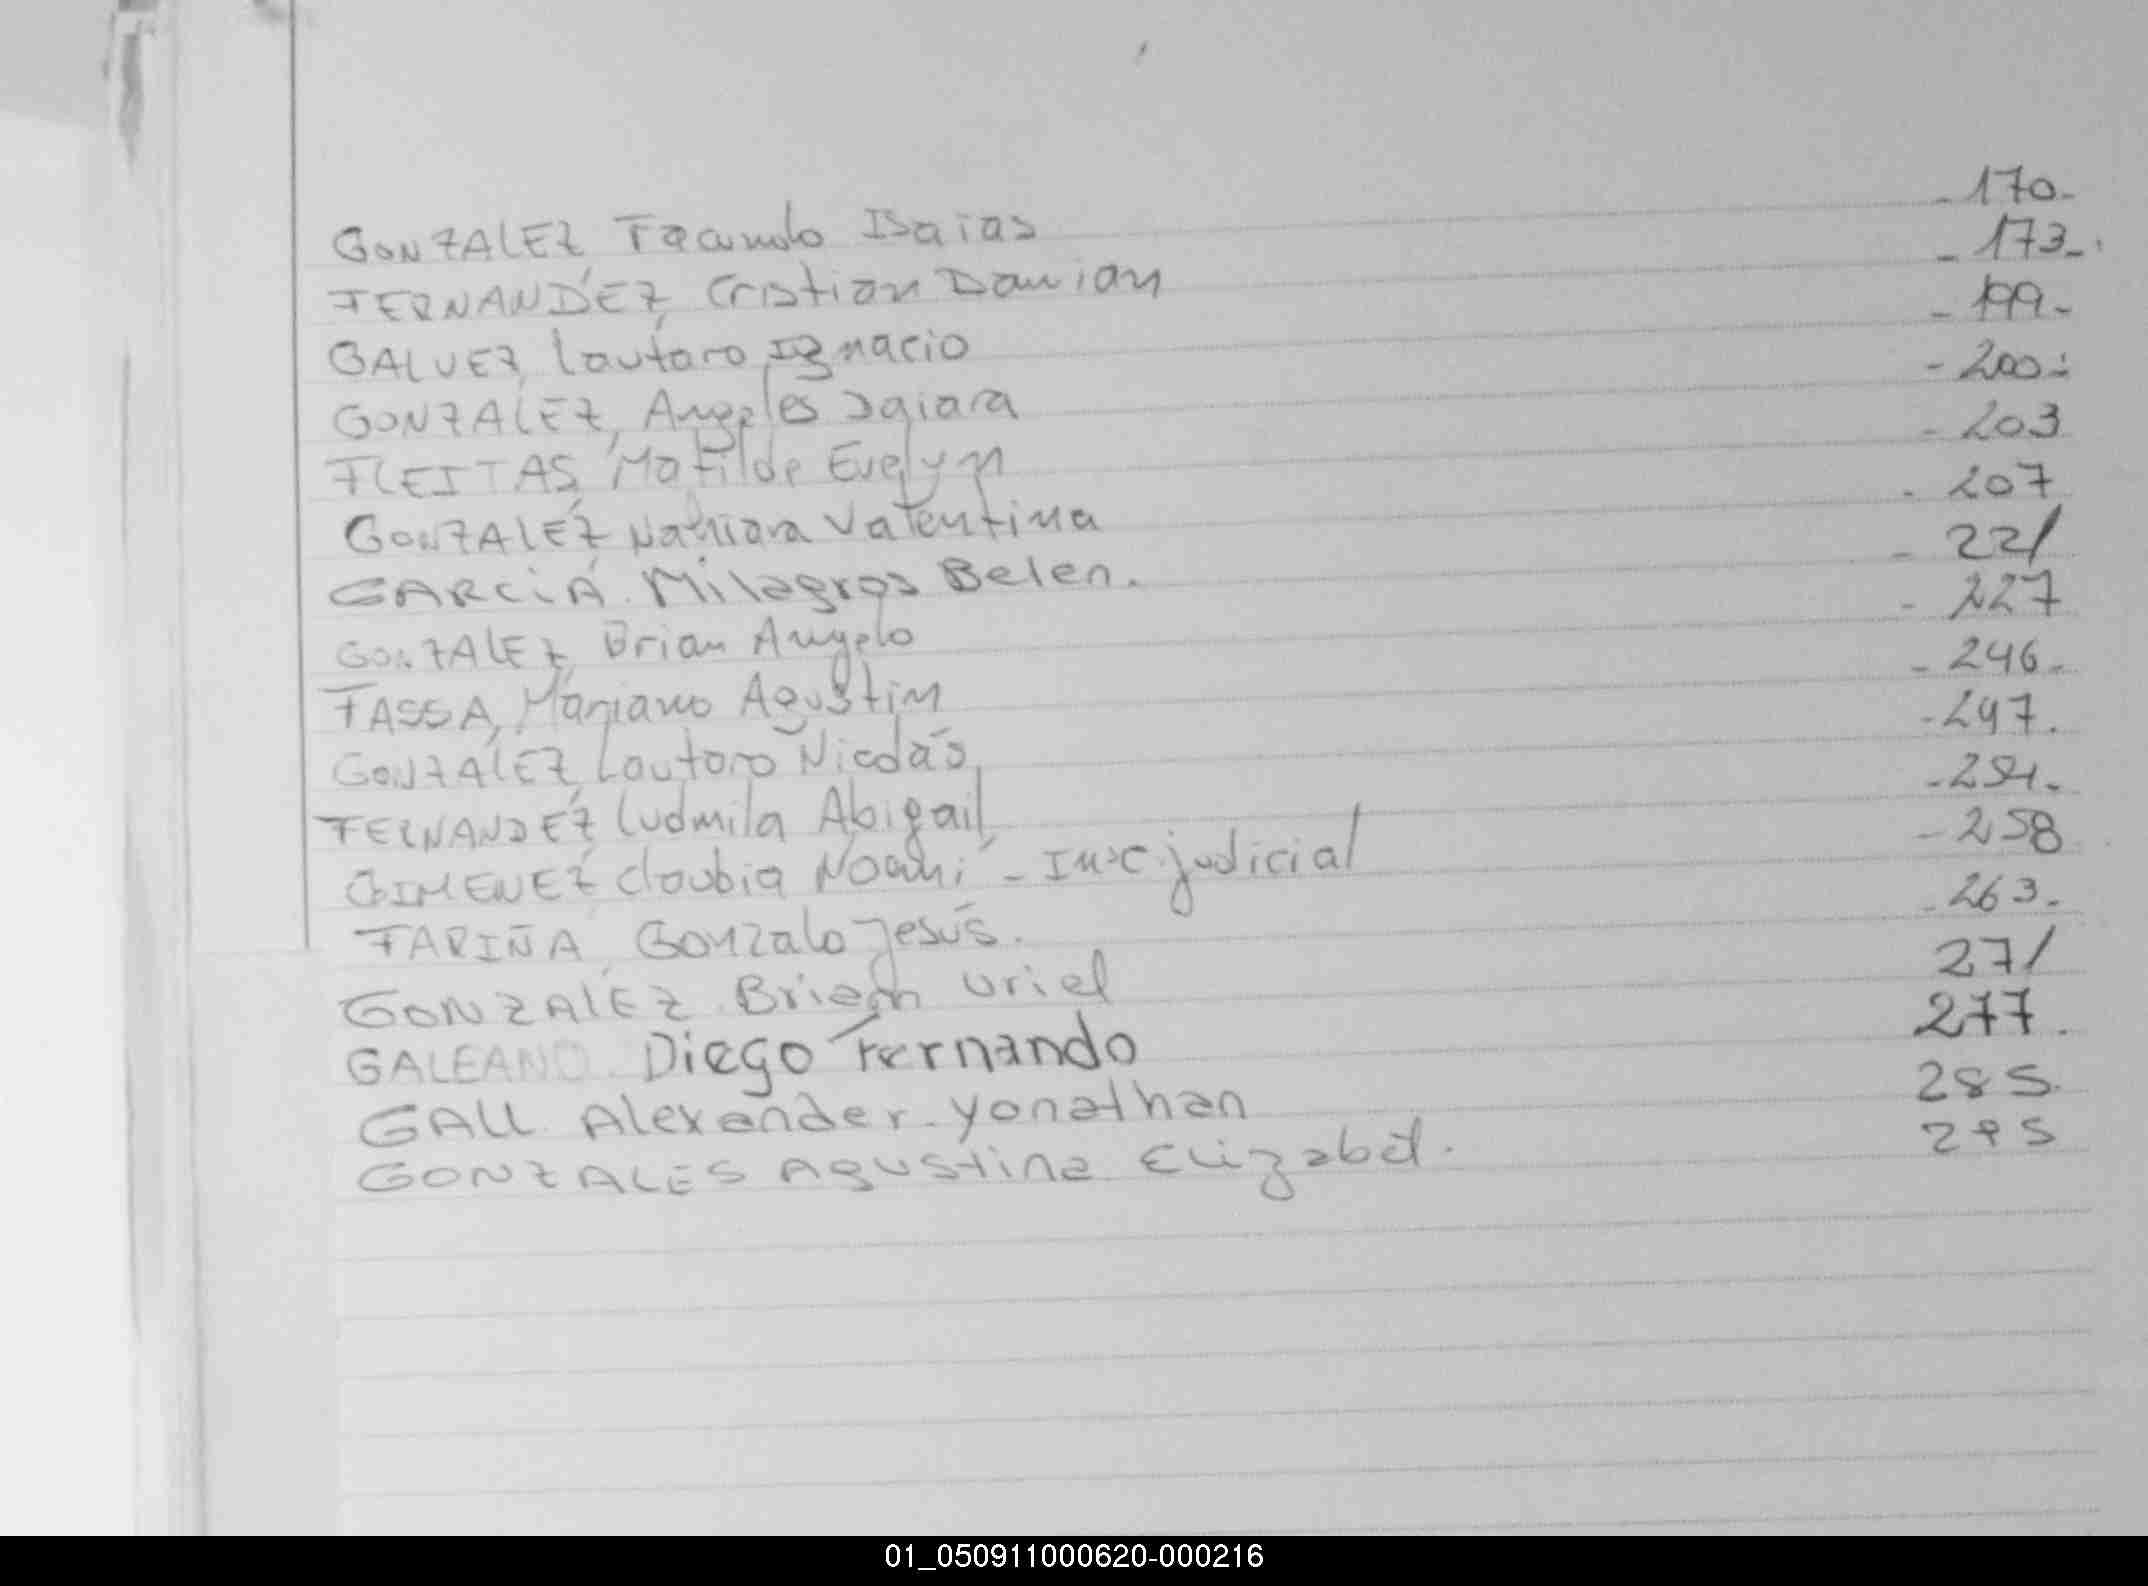 GONZALEZ Facundo Isaias - 170-
FERNANDEZ, Cristian Damian - 173-.
GALVEZ, Lautaro Ignacio - 199-
GONZALEZ, Angeles Jaiara - 200-
FLEITAS, Matilde Evelyn - 203
GONZALEZ, Nahiara Valentina - 207
GARCIA. Milagros Belen. - 221
GONZALEZ, Brian Angelo - 227
FASSA, Mariano Agustin - 246-
GONZALEZ, Lautaro Nicolás - 247.
FERNANDEZ, Ludmila Abigail
GIMENEZ Claudia Noemi - Insc. judicial - 258
FARIÑA, Gonzalo Jesús. - 263.
GONZALEZ. Briam Uriel 271
GALEANO. Diego Fernando 277.
GALL Alexander Yonathan 285.
GONZALES Agustina Elizabet. 295
01_050911000620-000216